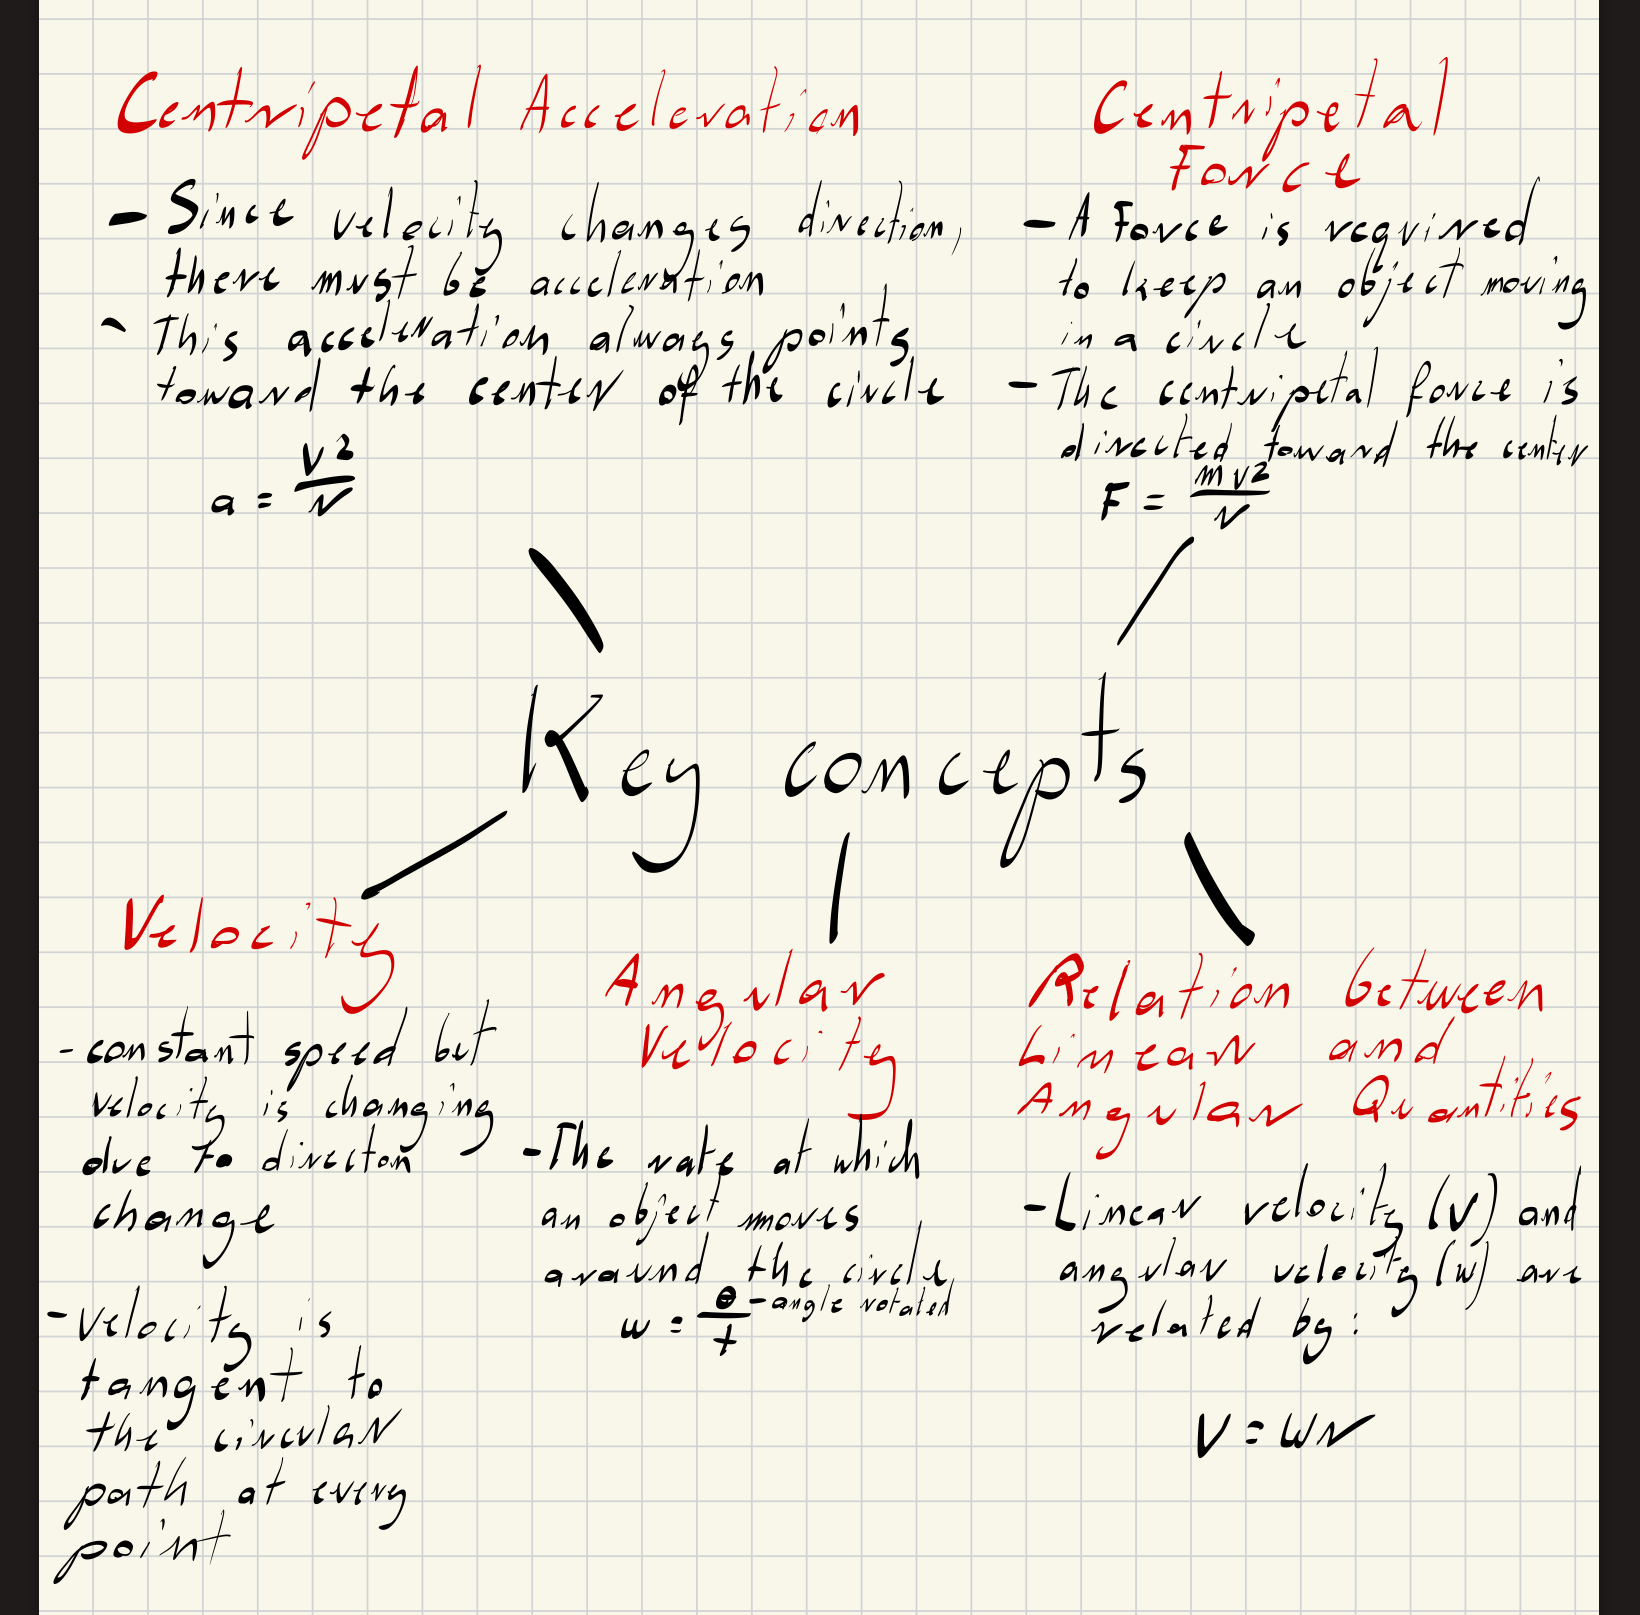 Centripetal Acceleration
- Since velocity changes direction,
there must be acceleration
- This acceleration always points
toward the center of the circle
a = v²/r
Centripetal
Force
- A Force is required
to keep an object moving
in a circle
- The centripetal force is
directed toward the center
F = mv²/r
Key concepts
Velocity
- constant speed but
velocity is changing
due to directon
change
- velocity is
tangent to
the circular
path at every
point
Angular
Velocity
- The rate at which
an object moves
around the circle,
ω = θ/t - angle rotated
Relation between
Linear and
Angular Quantities
- Linear velocity (v) and
angular velocity (w) are
related by:
V = ωr